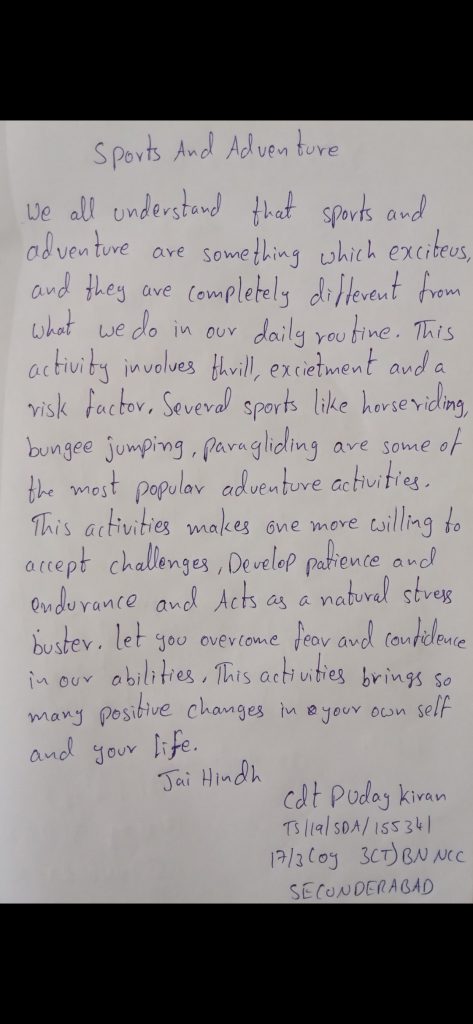 Sports And Adventure
We all understand that sports and
adventure are something which exciteus,
and they are completely different from
what we do in our daily routine. This
activity involves thrill, excietment and a
risk factor. Several sports like horse riding,
bungee jumping, paragliding are some of
the most popular adventure activities.
This activities makes one more willing to
accept challenges, Develop patience and
endurance and Acts as a natural stress
buster. let you overcome fear and confidence
in our abilities. This activities brings so
many positive changes in your own self
and your life.
Jai Hindh
Cdt P Uday Kiran
TS/19/SDA/155341
17/3 Coy 3(T) BN NCC
SECUNDERABAD